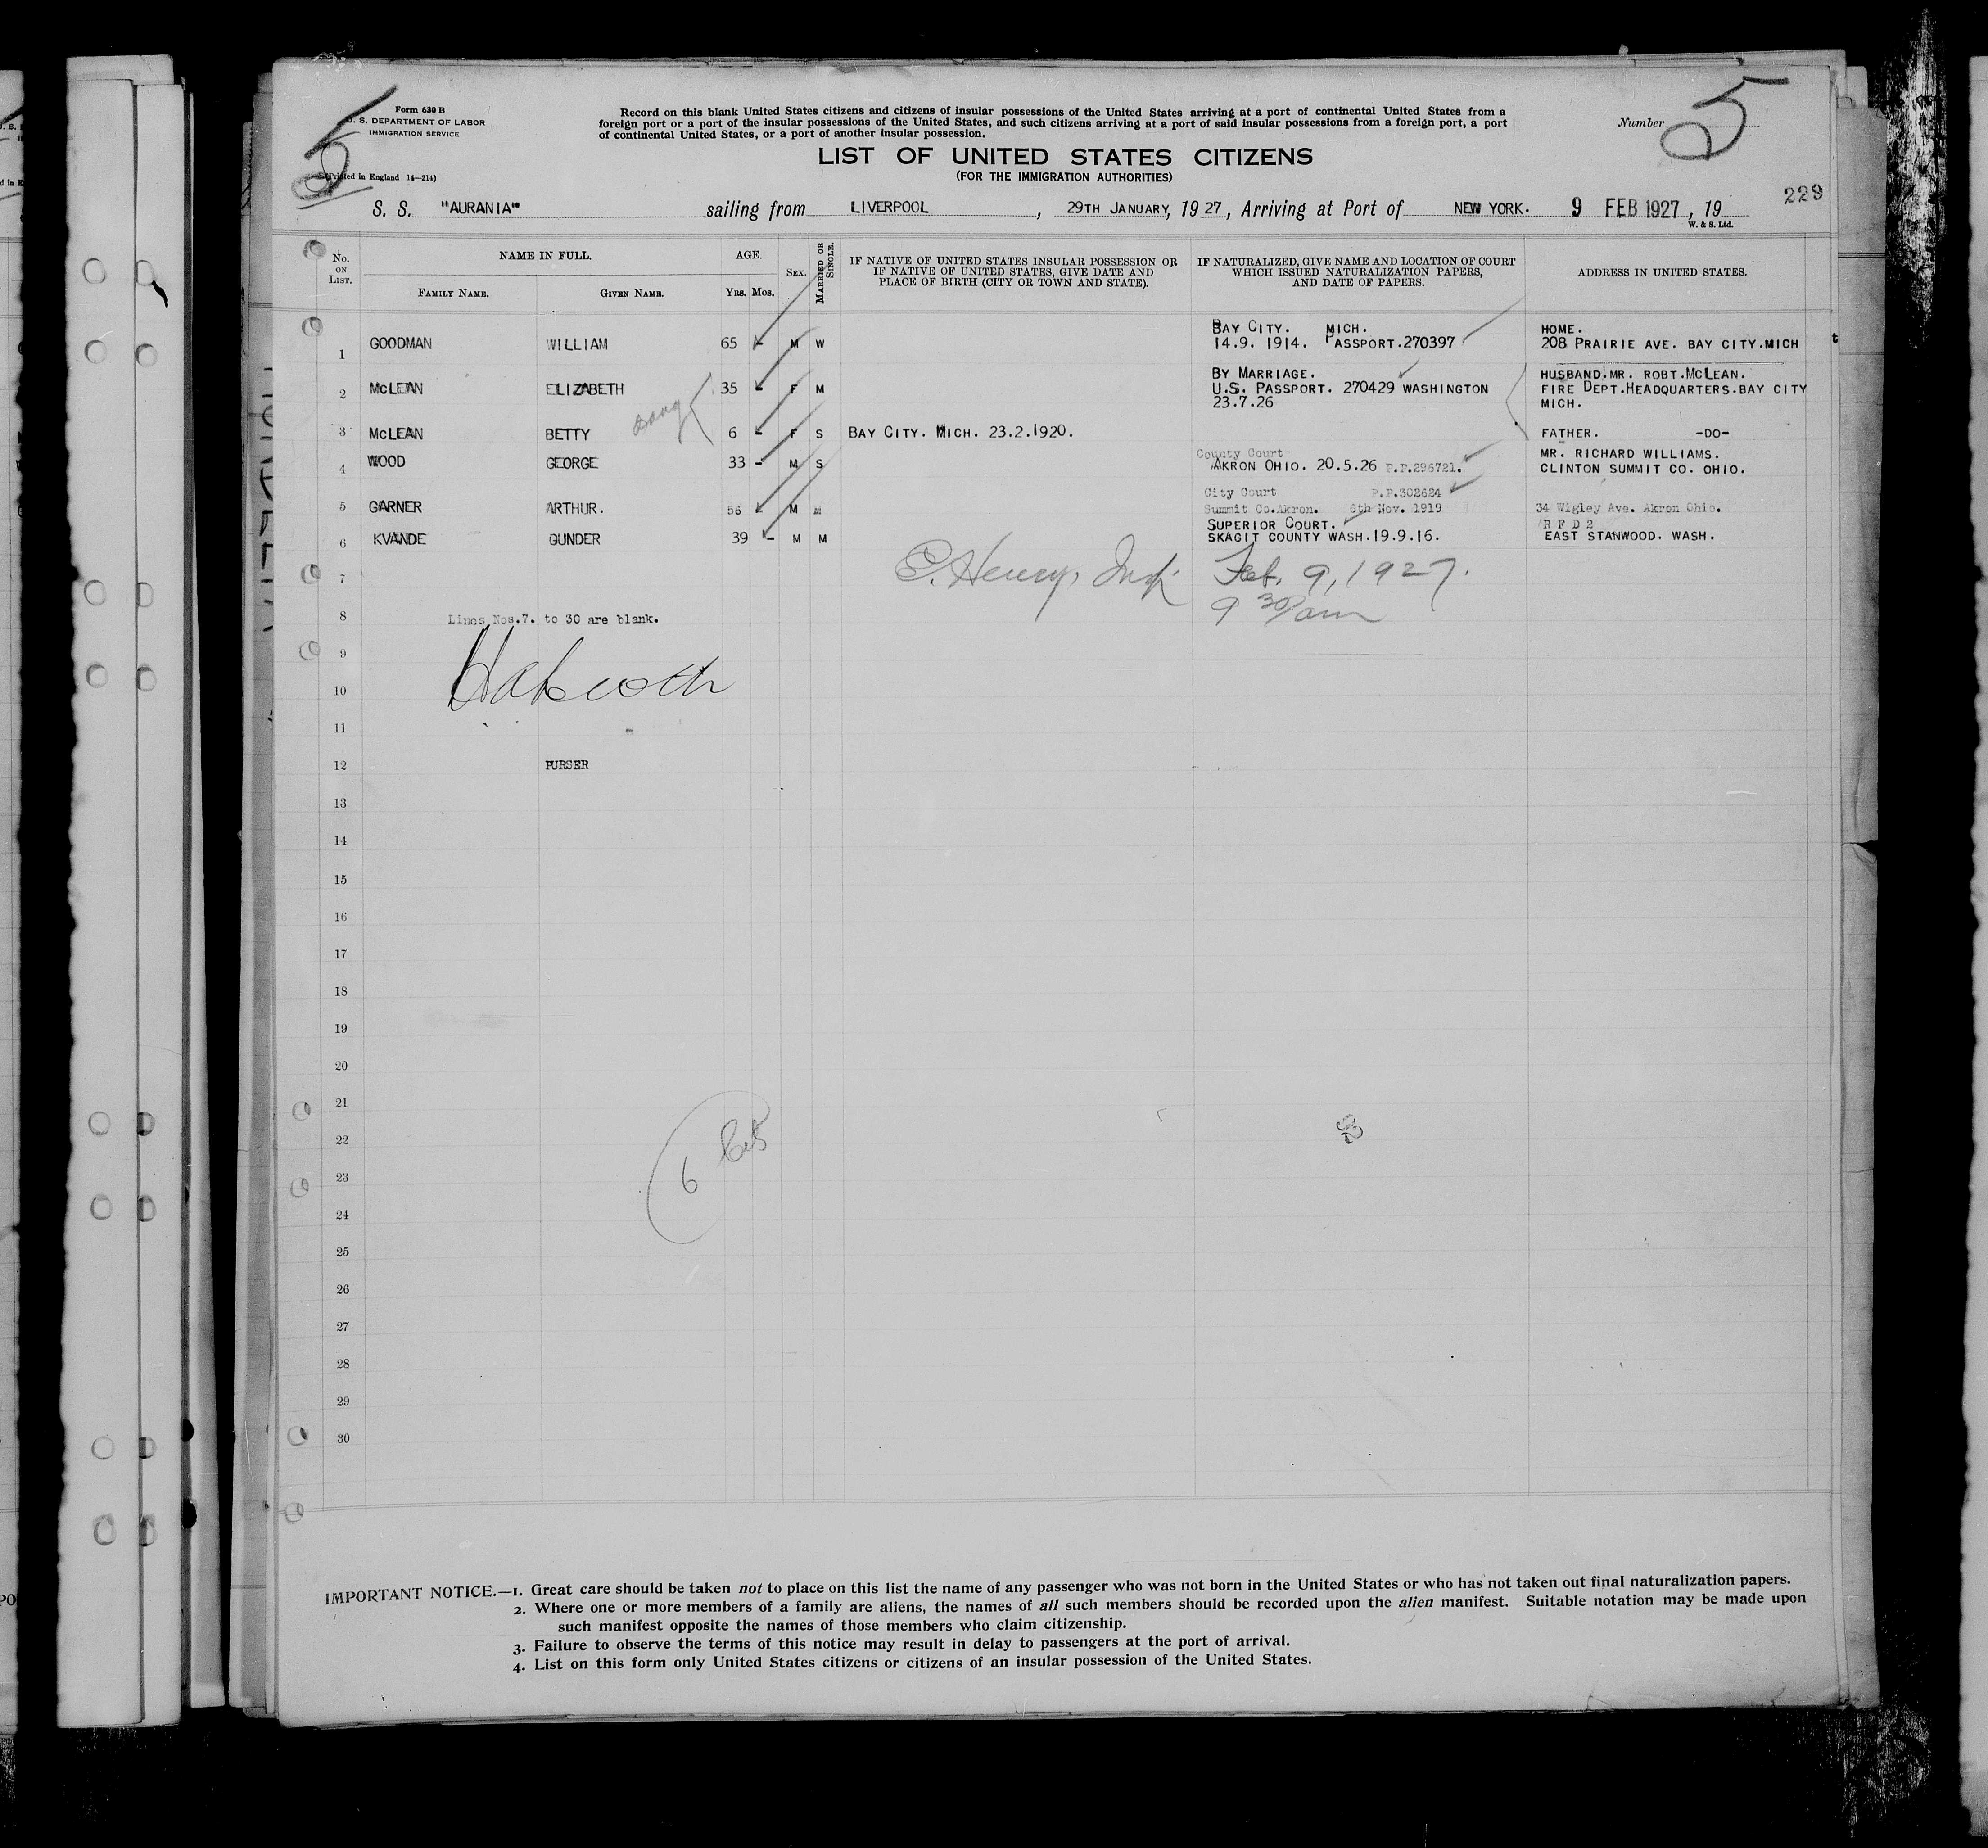 Form 630 B
U. S. DEPARTMENT OF LABOR
IMMIGRATION SERVICE
(Printed in England 14—214)
Record on this blank United States citizens and citizens of insular possessions of the United States arriving at a port of continental United States from a
foreign port or a port of the insular possessions of the United States, and such citizens arriving at a port of said insular possessions from a foreign port, a port
of continental United States, or a port of another insular possession.
Number 5
5
LIST OF UNITED STATES CITIZENS
(FOR THE IMMIGRATION AUTHORITIES)
229
S. S. "AURANIA" sailing from LIVERPOOL, 29TH JANUARY, 1927, Arriving at Port of NEW YORK. 9 FEB 1927, 19
W. & S. Ltd.
No. ON LIST. NAME IN FULL. AGE. SEX. MARRIED OR SINGLE. IF NATIVE OF UNITED STATES INSULAR POSSESSION OR IF NATIVE OF UNITED STATES, GIVE DATE AND PLACE OF BIRTH (CITY OR TOWN AND STATE). IF NATURALIZED, GIVE NAME AND LOCATION OF COURT WHICH ISSUED NATURALIZATION PAPERS, AND DATE OF PAPERS. ADDRESS IN UNITED STATES.
FAMILY NAME. GIVEN NAME. YRS. MOS.
BAY CITY. MICH. HOME.
1 GOODMAN WILLIAM 65 - M W 14.9. 1914. PASSPORT.270397 208 PRAIRIE AVE. BAY CITY.MICH
BY MARRIAGE. HUSBAND.MR. ROBT.McLEAN.
2 McLEAN ELIZABETH 35 - F M U.S. PASSPORT. 270429 WASHINGTON FIRE DEPT.HEADQUARTERS.BAY CITY
23.7.26 MICH.
3 McLEAN BETTY 6 - F S BAY CITY. MICH. 23.2.1920. FATHER. -DO-
County Court MR. RICHARD WILLIAMS.
4 WOOD GEORGE 33 - M S AKRON OHIO. 20.5.26 P.P.296721. CLINTON SUMMIT CO. OHIO.
City Court P.P.302624
5 GARNER ARTHUR. 56 - M M Summit Co.Akron. 6th Nov. 1919 34 Wigley Ave. Akron Ohio.
SUPERIOR COURT. R F D 2
6 KVANDE GUNDER 39 - M M SKAGIT COUNTY WASH.19.9.16. EAST STANWOOD. WASH.
7 E. Henry, Insp. Feb. 9, 1927.
9 30/am
8 Lines Nos.7. to 30 are blank.
9
10
11
12 PURSER
13
14
15
16
17
18
19
20
21
22
23 6
24
25
26
27
28
29
30
IMPORTANT NOTICE.—1. Great care should be taken not to place on this list the name of any passenger who was not born in the United States or who has not taken out final naturalization papers.
2. Where one or more members of a family are aliens, the names of all such members should be recorded upon the alien manifest. Suitable notation may be made upon
such manifest opposite the names of those members who claim citizenship.
3. Failure to observe the terms of this notice may result in delay to passengers at the port of arrival.
4. List on this form only United States citizens or citizens of an insular possession of the United States.